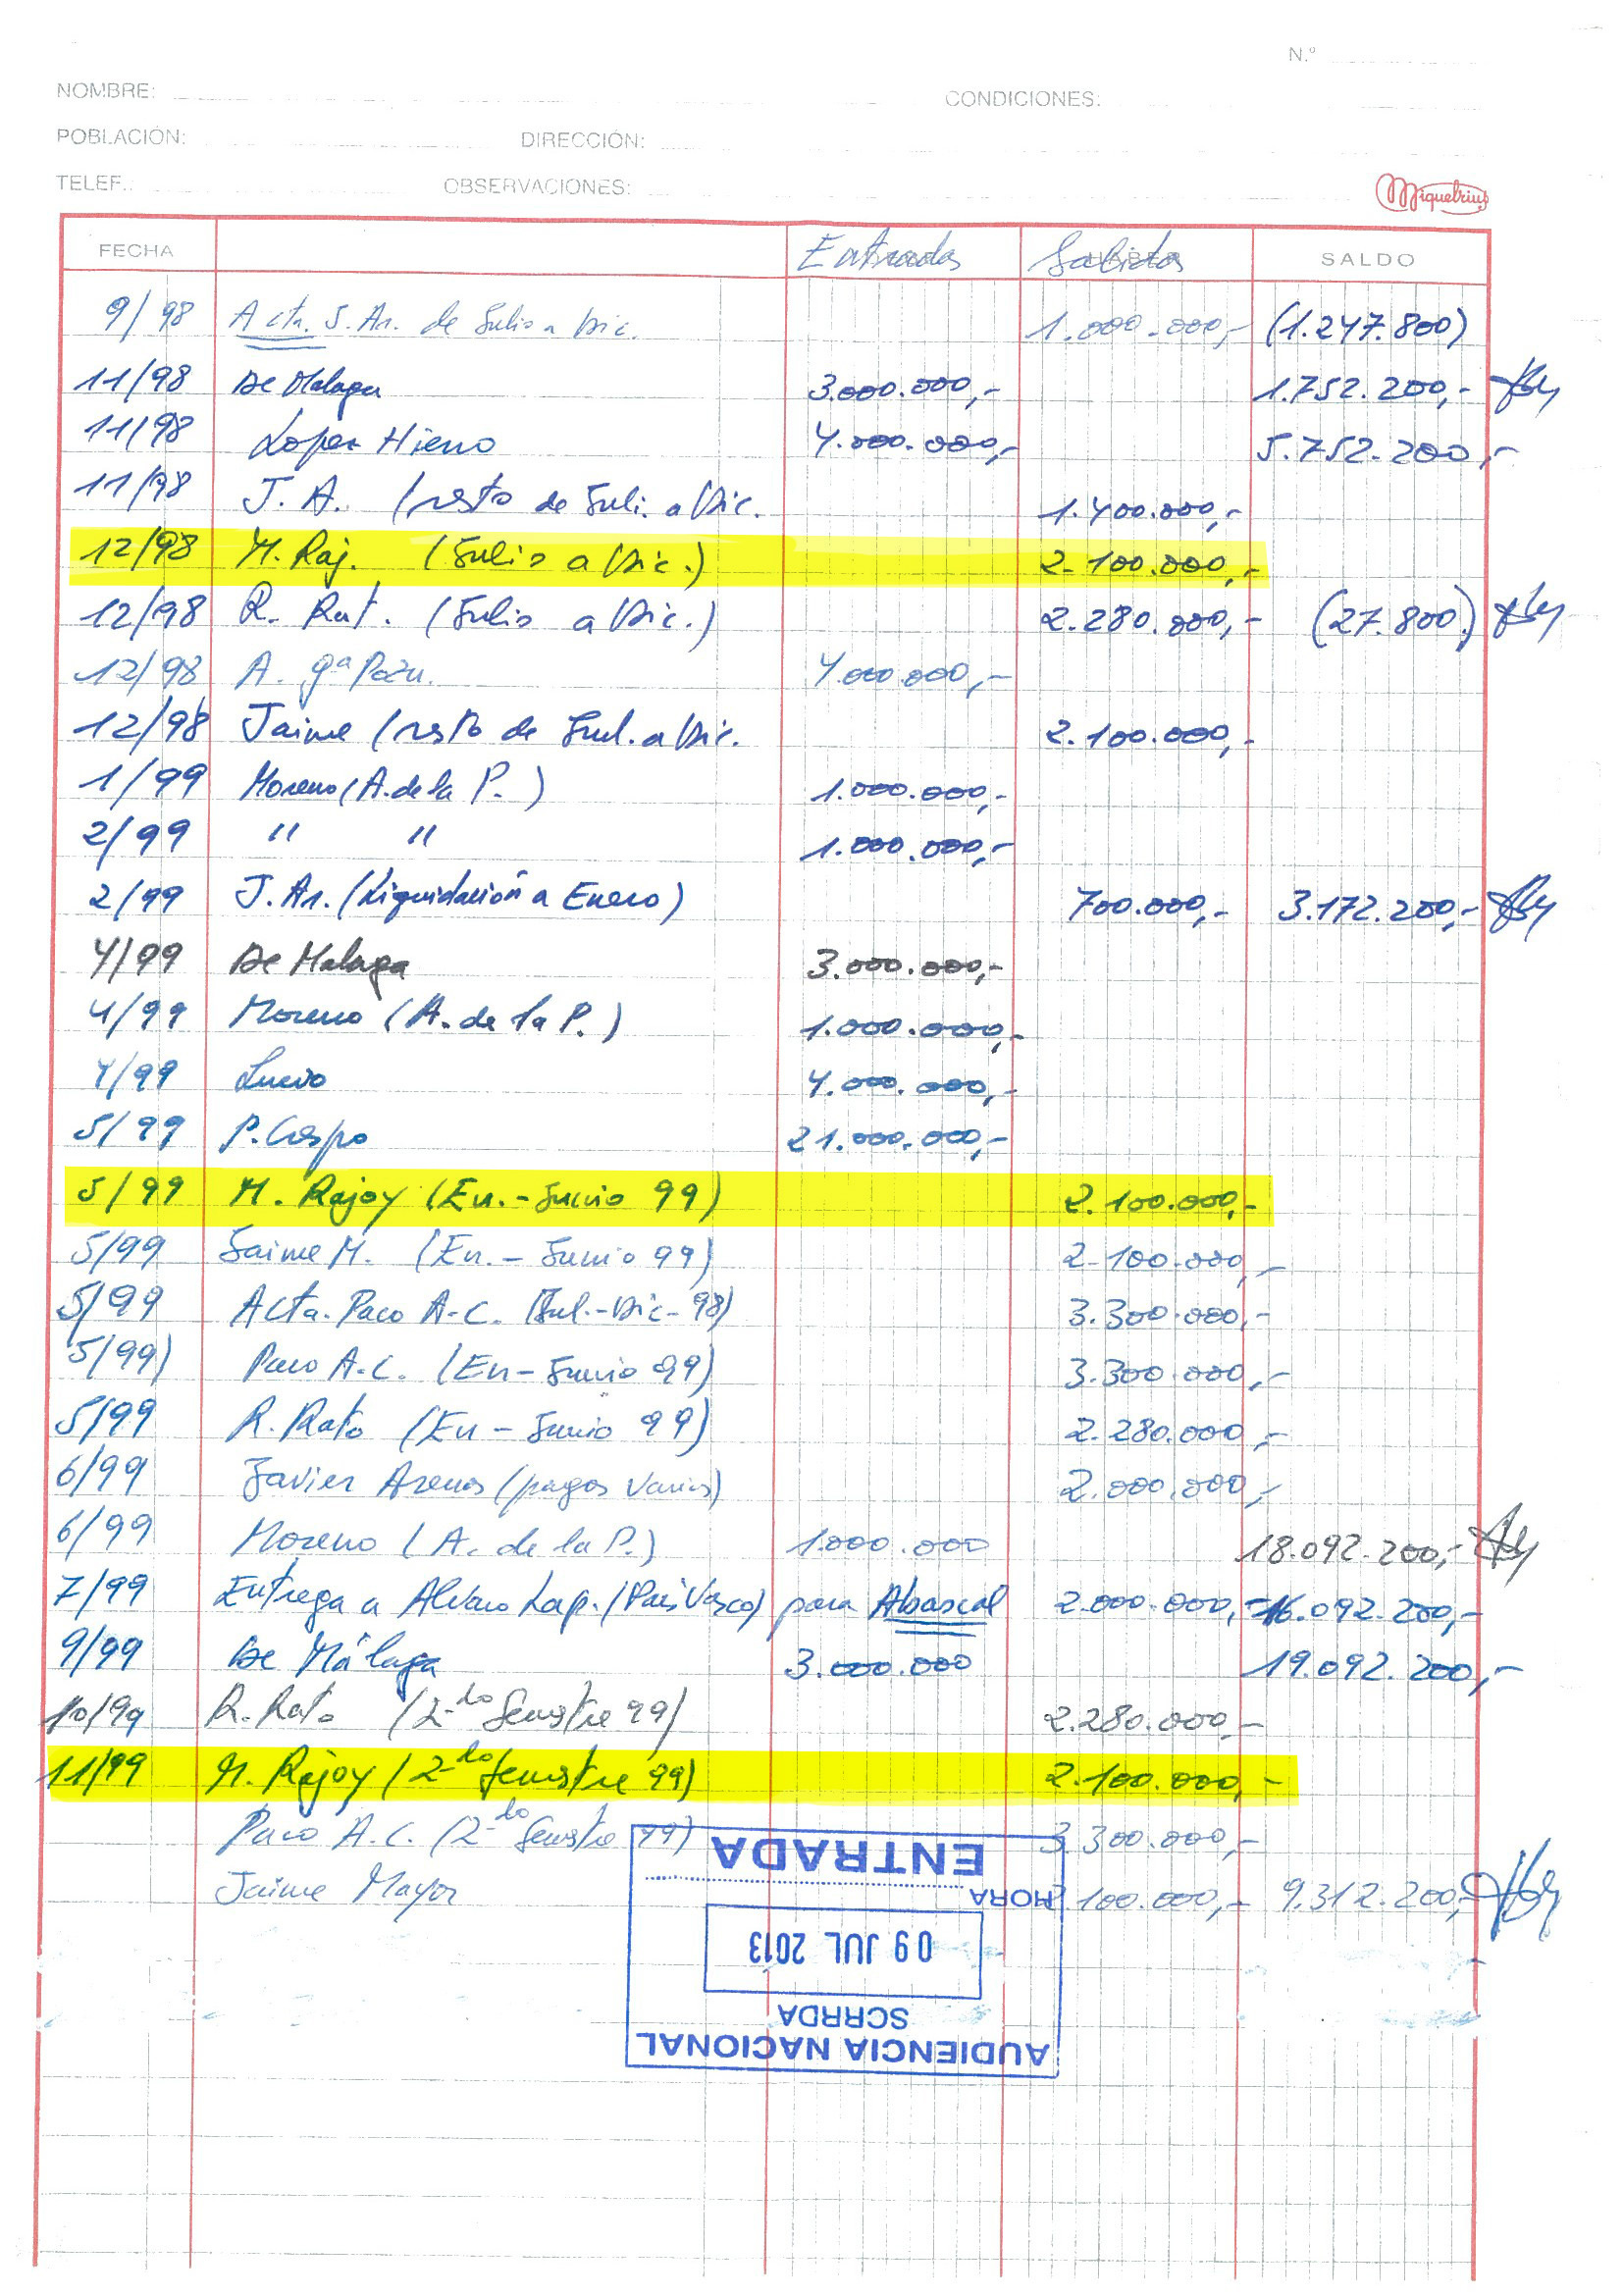 N.º
NOMBRE:
CONDICIONES:
POBLACIÓN:
DIRECCIÓN:
TELEF.:
OBSERVACIONES:
Miquelrius
FECHA Entradas Salidas SALDO
9/98 A cta. J. Ar. de Julio a Dic. 1.000.000,- (1.247.800)
11/98 De Malaga 3.000.000,- 1.752.200,-
11/98 Lopez Hierro 4.000.000,- 5.752.200,-
11/98 J. A. (resto de Juli. a Dic. 1.400.000,-
12/98 M. Raj. (Julio a Dic.) 2.100.000,-
12/98 R. Rat. (Julio a Dic.) 2.280.000,- (27.800)
12/98 A. Gª Pozu. 4.000.000,-
12/98 Jaime (resto de Jul. a Dic. 2.100.000,-
1/99 Moreno (A. de la P.) 1.000.000,-
2/99 " " 1.000.000,-
2/99 J. Ar. (Liquidación a Enero) 700.000,- 3.172.200,-
4/99 De Malaga 3.000.000,-
4/99 Moreno (A. de la P.) 1.000.000,-
4/99 4.000.000,-
5/99 P. Crespo 21.000.000,-
5/99 M. Rajoy (En.-Junio 99) 2.100.000,-
5/99 Jaime M. (En.-Junio 99) 2.100.000,-
5/99 A cta. Paco A-C. (Jul.-Dic-98) 3.300.000,-
5/99) Paco A.C. (En-Junio 99) 3.300.000,-
5/99 R. Rato (En-Junio 99) 2.280.000,-
6/99 Javier Arenas (pagos varios) 2.000.000,-
6/99 Moreno (A. de la P.) 1.000.000 18.092.200,-
7/99 Entrega a Alvaro Lap. (Pais Vasco) para Abascal 2.000.000,- 16.092.200,-
9/99 De Málaga 3.000.000 19.092.200,-
10/99 R. Rato (2do Semestre 99) 2.280.000,-
11/99 M. Rajoy (2do Semestre 99) 2.100.000,-
Paco A.C. (2do Semestre 99) 3.300.000,-
Jaime Mayor 100.000,- 9.312.200,-
AUDIENCIA NACIONAL
SCRRDA
09 JUL 2013
HORA
ENTRADA